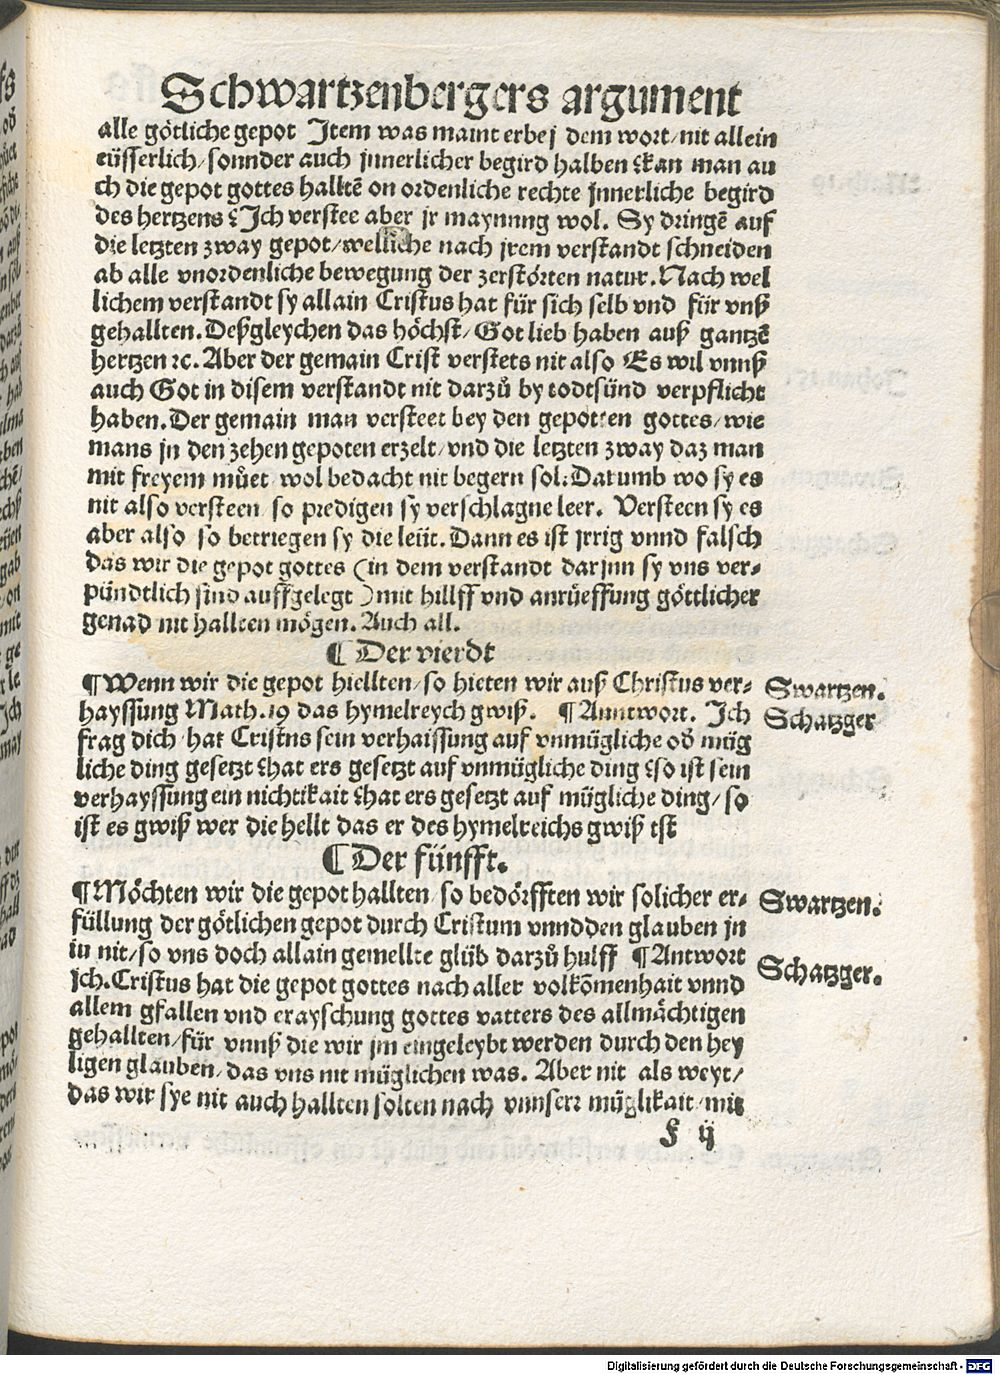 Schwartzenbergers argument
alle götliche gepot Jtem was maint er bej dem wort/ nit allein
eüsserlich/ sonnder auch jnnerlicher begird halben ? kan man au
ch die gepot gottes halltē on ordenliche rechte jnnerliche begird
des hertzens ? Jch verstee aber jr maynung wol. Sy dringē auf
die letzten zway gepot/ welliche nach jrem verstandt schneiden
ab alle vnordenliche bewegung der zerstörten natur. Nach wel
lichem verstandt sy allain Cristus hat für sich selb vnd für vnß
gehallten. Deßgleychen das höchst/ Got lieb haben auß gantzē
hertzen ꝛc. Aber der gemain Crist verstets nit also Es wil vnnß
auch Got in disem verstandt nit darzů by todtsünd verpflicht
haben. Der gemain man versteet bey den gepotten gottes/ wie
mans jn den zehen gepoten erzelt/ vnd die letzten zway daz man
mit freyem můet wol bedacht nit begern sol: Darumb wo sy es
nit also versteen so predigen sy verschlagne leer. Versteen sy es
aber also so betriegen sy die leüt. Dann es ist jrrig vnnd falsch
das wir die gepot gottes (in dem verstandt darjnn sy vns ver⸗
pündtlich sind auffgelegt ) mit hillff vnd anrüeffung göttlicher
genad nit hallten mögen. Auch all.
¶ Der vierdt
¶ Wenn wir die gepot hiellten/ so hieten wir auß Christus ver⸗
hayssung Math. 19 das hymelreych gwiß. ¶ Anntwort. Jch
frag dich/ hat Cristns sein verhaissung auf vnmügliche od̓ müg
liche ding gesetzt ? hat ers gesetzt auf vnmügliche ding ? so ist sein
verhayssung ein nichtikait ? hat ers gesetzt auf mügliche ding/ so
ist es gwiß wer die hellt das er des hymelreichs gwiß ist
Swartzen.
Schatzger
¶ Der fünfft.
¶ Möchten wir die gepot hallten/ so bedörfften wir solicher er⸗
füllung der götlichen gepot durch Cristum vnnd den glauben jn
in nit/ so vns doch allain gemellte glüb darzů hulff ¶ Antwort
Jch. Cristus hat die gepot gottes nach aller volkōmenhait vnnd
allem gfallen vnd erayschung gottes vatters des allmächtigen
gehallten/ für vnnß die wir jm eingeleybt werden durch den hey
ligen glauben/ das vns nit müglichen was. Aber nit als weyt/
das wir sye nit auch hallten solten nach vnnserr müglikait/ mit
Swartzen.
Schatzger.
f ij
Digitalisierung gefördert durch die Deutsche Forschungsgemeinschaft - DFG